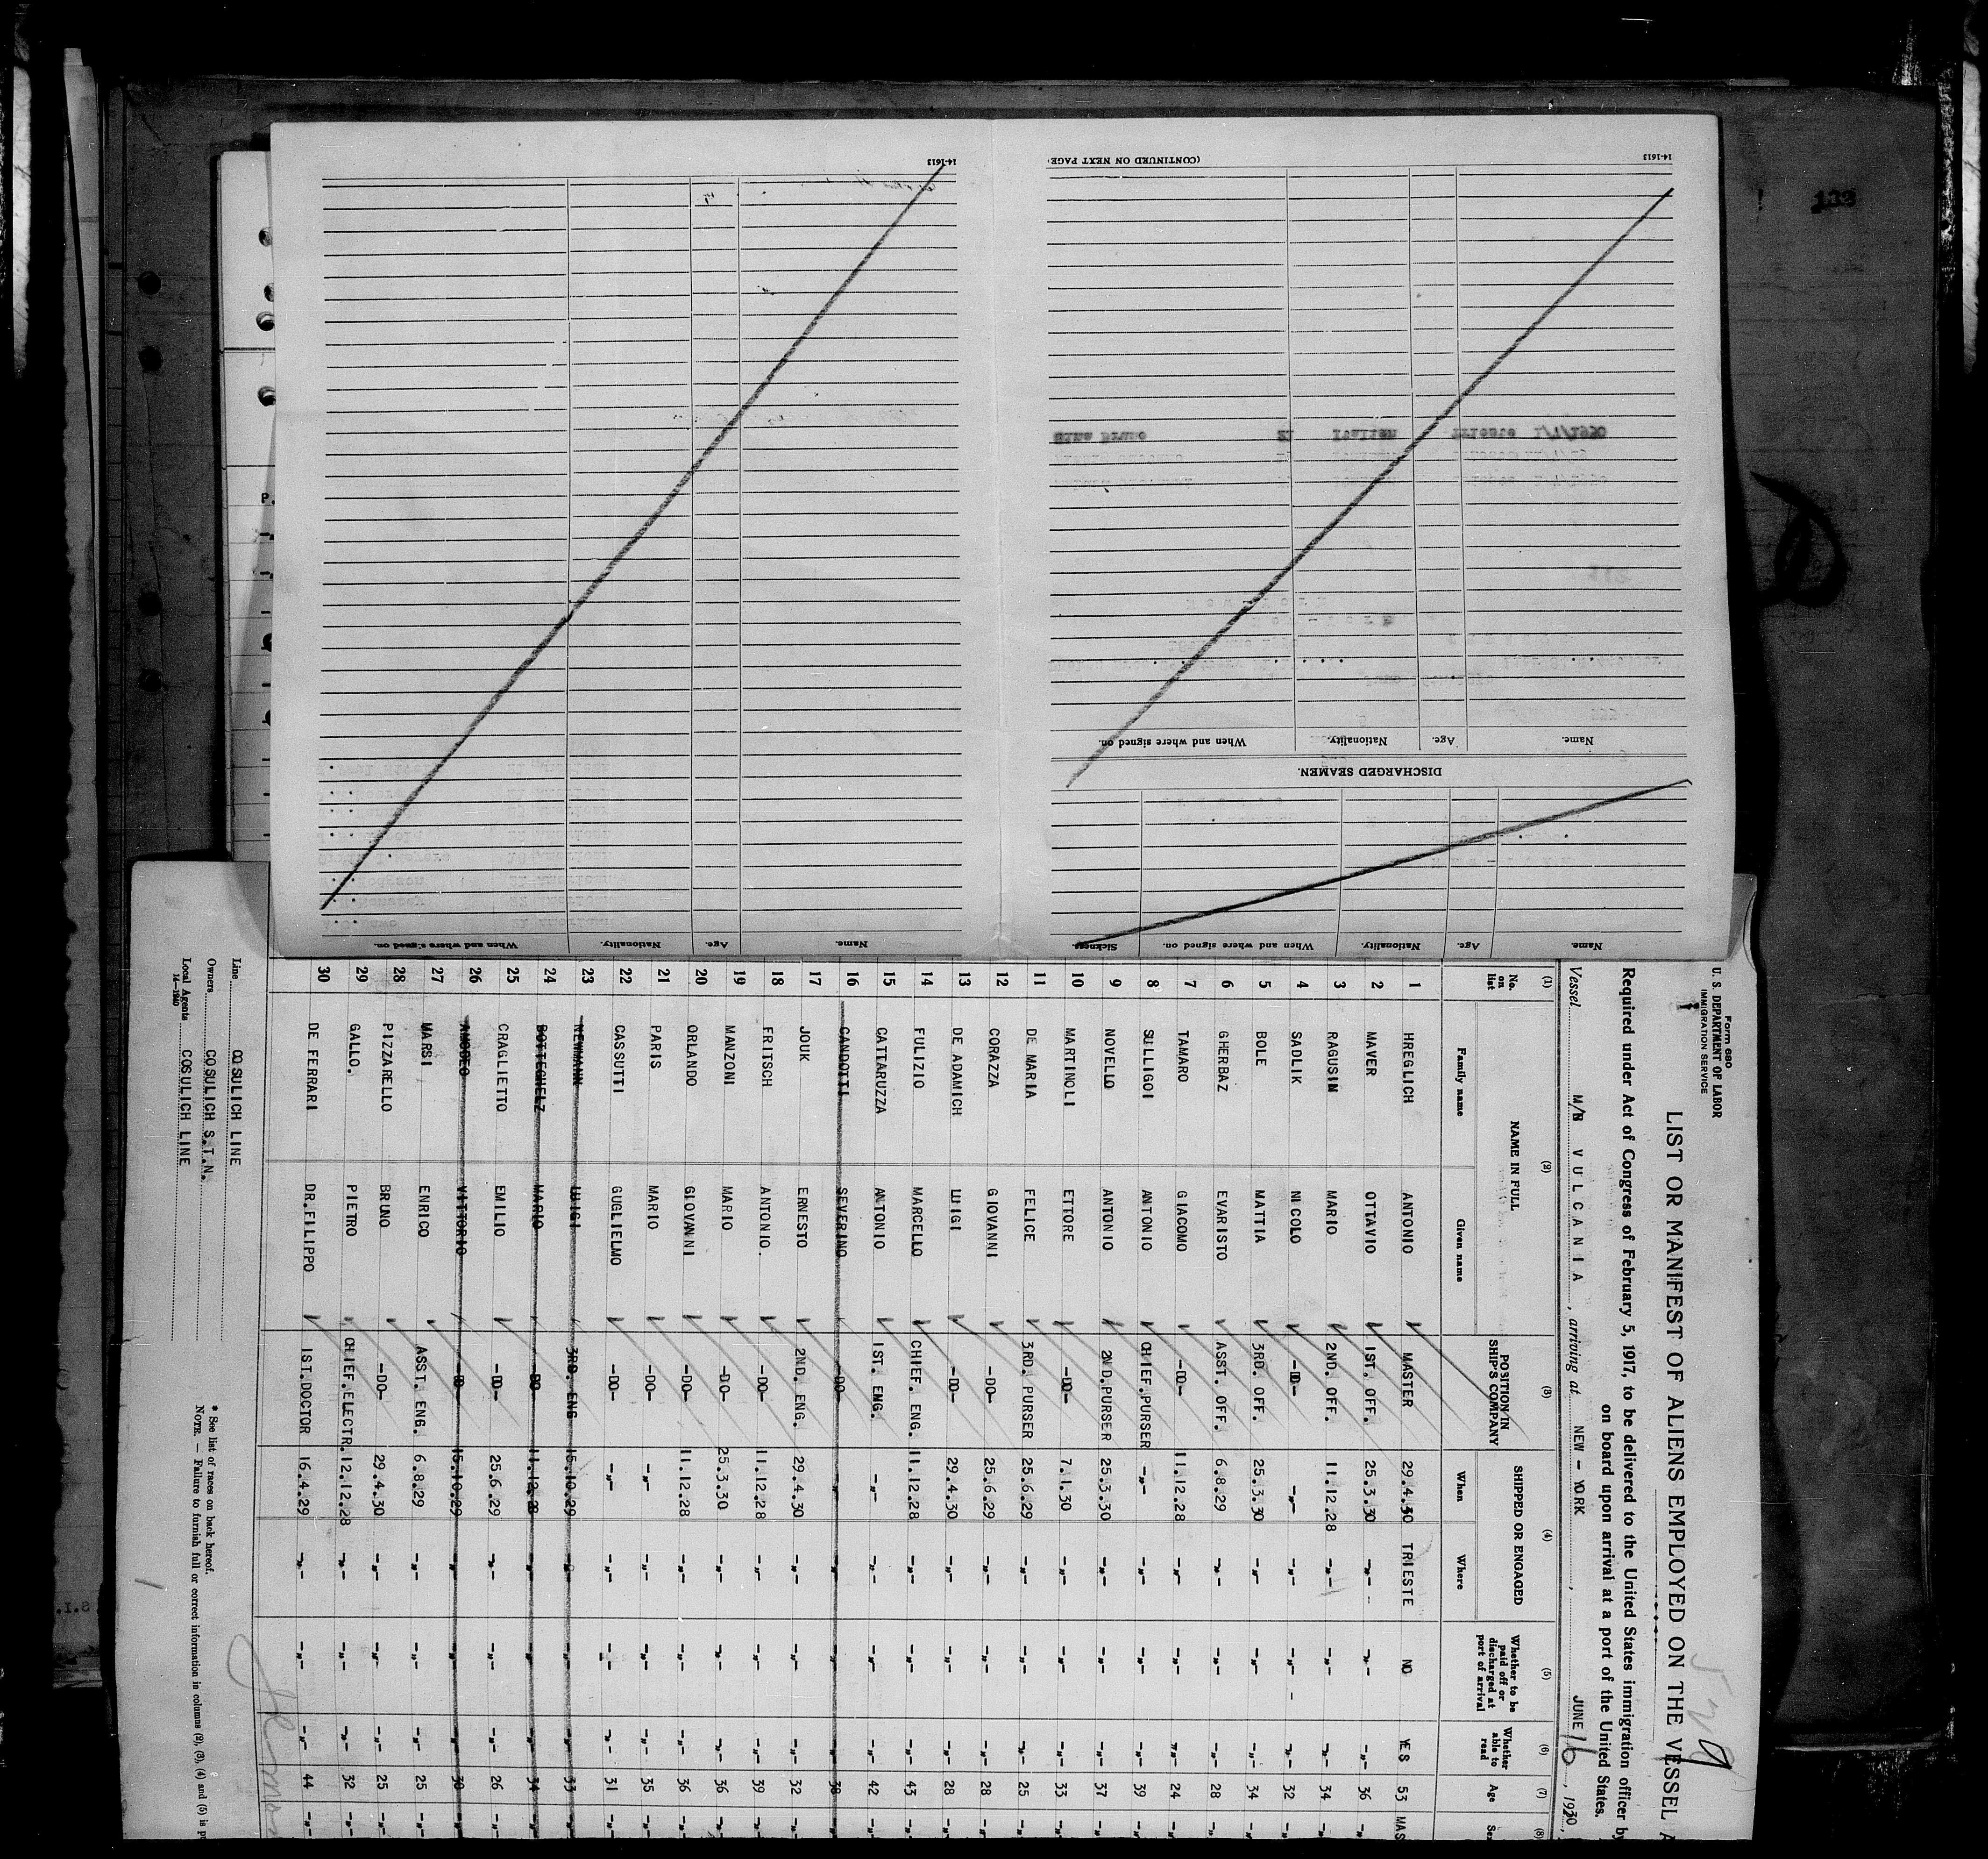 14-1613
(CONTINUED ON NEXT PAGE)
14-1613
Name. Age. Nationality. When and where signed on.
DISCHARGED SEAMEN.
Name. Age. Nationality. When and where signed on. Sickness
Name. Age. Nationality. When and where signed on.
132
Form 680
U. S. DEPARTMENT OF LABOR
IMMIGRATION SERVICE
LIST OR MANIFEST OF ALIENS EMPLOYED ON THE VESSEL A
Required under Act of Congress of February 5, 1917, to be delivered to the United States immigration officer by
on board upon arrival at a port of the United States.
Vessel M/N VULCANIA, arriving at NEW-YORK, JUNE 16, 1930
(1) (2) (3) (4) (5) (6) (7) (8)
No. on list NAME IN FULL POSITION IN SHIP'S COMPANY SHIPPED OR ENGAGED Whether to be paid off or discharged at port of arrival Whether able to read Age Sex
Family name Given name When Where
1 HREGLICH ANTONIO MASTER 29.4.30 TRIESTE NO YES 53 MAS
2 MAVER OTTAVIO 1ST. OFF. 25.3.30 -"- -"- -"- 36 -"-
3 RAGUSIN MARIO 2ND. OFF. 11.12.28 -"- -"- -"- 34 -"-
4 SADLIK NICOLO -DO- -"- -"- -"- -"- 32 -"-
5 BOLE MATTIA 3RD. OFF. 25.3.30 -"- -"- -"- 34 -"-
6 GHERBAZ EVARISTO ASST. OFF. 6.8.29 -"- -"- -"- 28 -"-
7 TAMARO GIACOMO -DO- 11.12.28 -"- -"- -"- 24 -"-
8 SULLIGOI ANTONIO CHIEF.PURSER -"- -"- -"- -"- 39 -"-
9 NOVELLO ANTONIO 2ND.PURSER 25.3.30 -"- -"- -"- 37 -"-
10 MARTINOLI ETTORE -DO- 7.1.30 -"- -"- -"- 33 -"-
11 DE MARIA FELICE 3RD. PURSER 25.6.29 -"- -"- -"- 25 -"-
12 CORAZZA GIOVANNI -DO- 25.6.29 -"- -"- -"- 28 -"-
13 DE ADAMICH LUIGI -DO- 29.4.30 -"- -"- -"- 28 -"-
14 FULIZIO MARCELLO CHIEF. ENG. 11.12.28 -"- -"- -"- 43 -"-
15 CATTARUZZA ANTONIO 1ST. ENG. -"- -"- -"- -"- 42 -"-
16 CANDOTTI SEVERINO -DO- -"- -"- -"- -"- 38 -"-
17 JOUK ERNESTO 2ND. ENG. 29.4.30 -"- -"- -"- 32 -"-
18 FRITSCH ANTONIO. -DO- 11.12.28 -"- -"- -"- 39 -"-
19 MANZONI MARIO -DO- 25.3.30 -"- -"- -"- 36 -"-
20 ORLANDO GIOVANNI -DO- 11.12.28 -"- -"- -"- 36 -"-
21 PARIS MARIO -DO- -"- -"- -"- -"- 35 -"-
22 CASSUTTI GUGLIELMO -DO- -"- -"- -"- -"- 31 -"-
23 NEWMANN LUIGI 3RD. ENG 15.10.29 -"- -"- -"- 33 -"-
24 BOTTEGHELZ MARIO -DO- 11.12.28 -"- -"- -"- 34 -"-
25 CRAGLIETTO EMILIO -DO- 25.6.29 -"- -"- -"- 26 -"-
26 AMODEO VITTORIO -DO- 15.10.29 -"- -"- -"- 30 -"-
27 MARSI ENRICO ASST. ENG. 6.8.29 -"- -"- -"- 25 -"-
28 PIZZARELLO BRUNO -DO- 29.4.30 -"- -"- -"- 25 -"-
29 GALLO. PIETRO CHIEF.ELECTR. 12.12.28 -"- -"- -"- 32 -"-
30 DE FERRARI DR.FILIPPO 1ST.DOCTOR 16.4.29 -"- -"- -"- 44 -"-
Line COSULICH LINE
Owners COSULICH S.T.N.
Local Agents COSULICH LINE
14-1240
* See list of races on back hereof.
NOTE. — Failure to furnish full or correct information in columns (2), (3), (4) and (5) is p